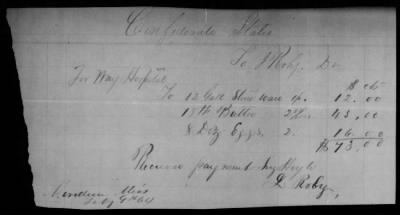 Confederate States
To J Roby Dr
For Way Hospital $ cts
To 12 Gall Stone ware 12.00
18 lb Butter 45.00
8 Doz Eggs 2. 16.00
$73.00
Received payment
Roby
Meridian Miss